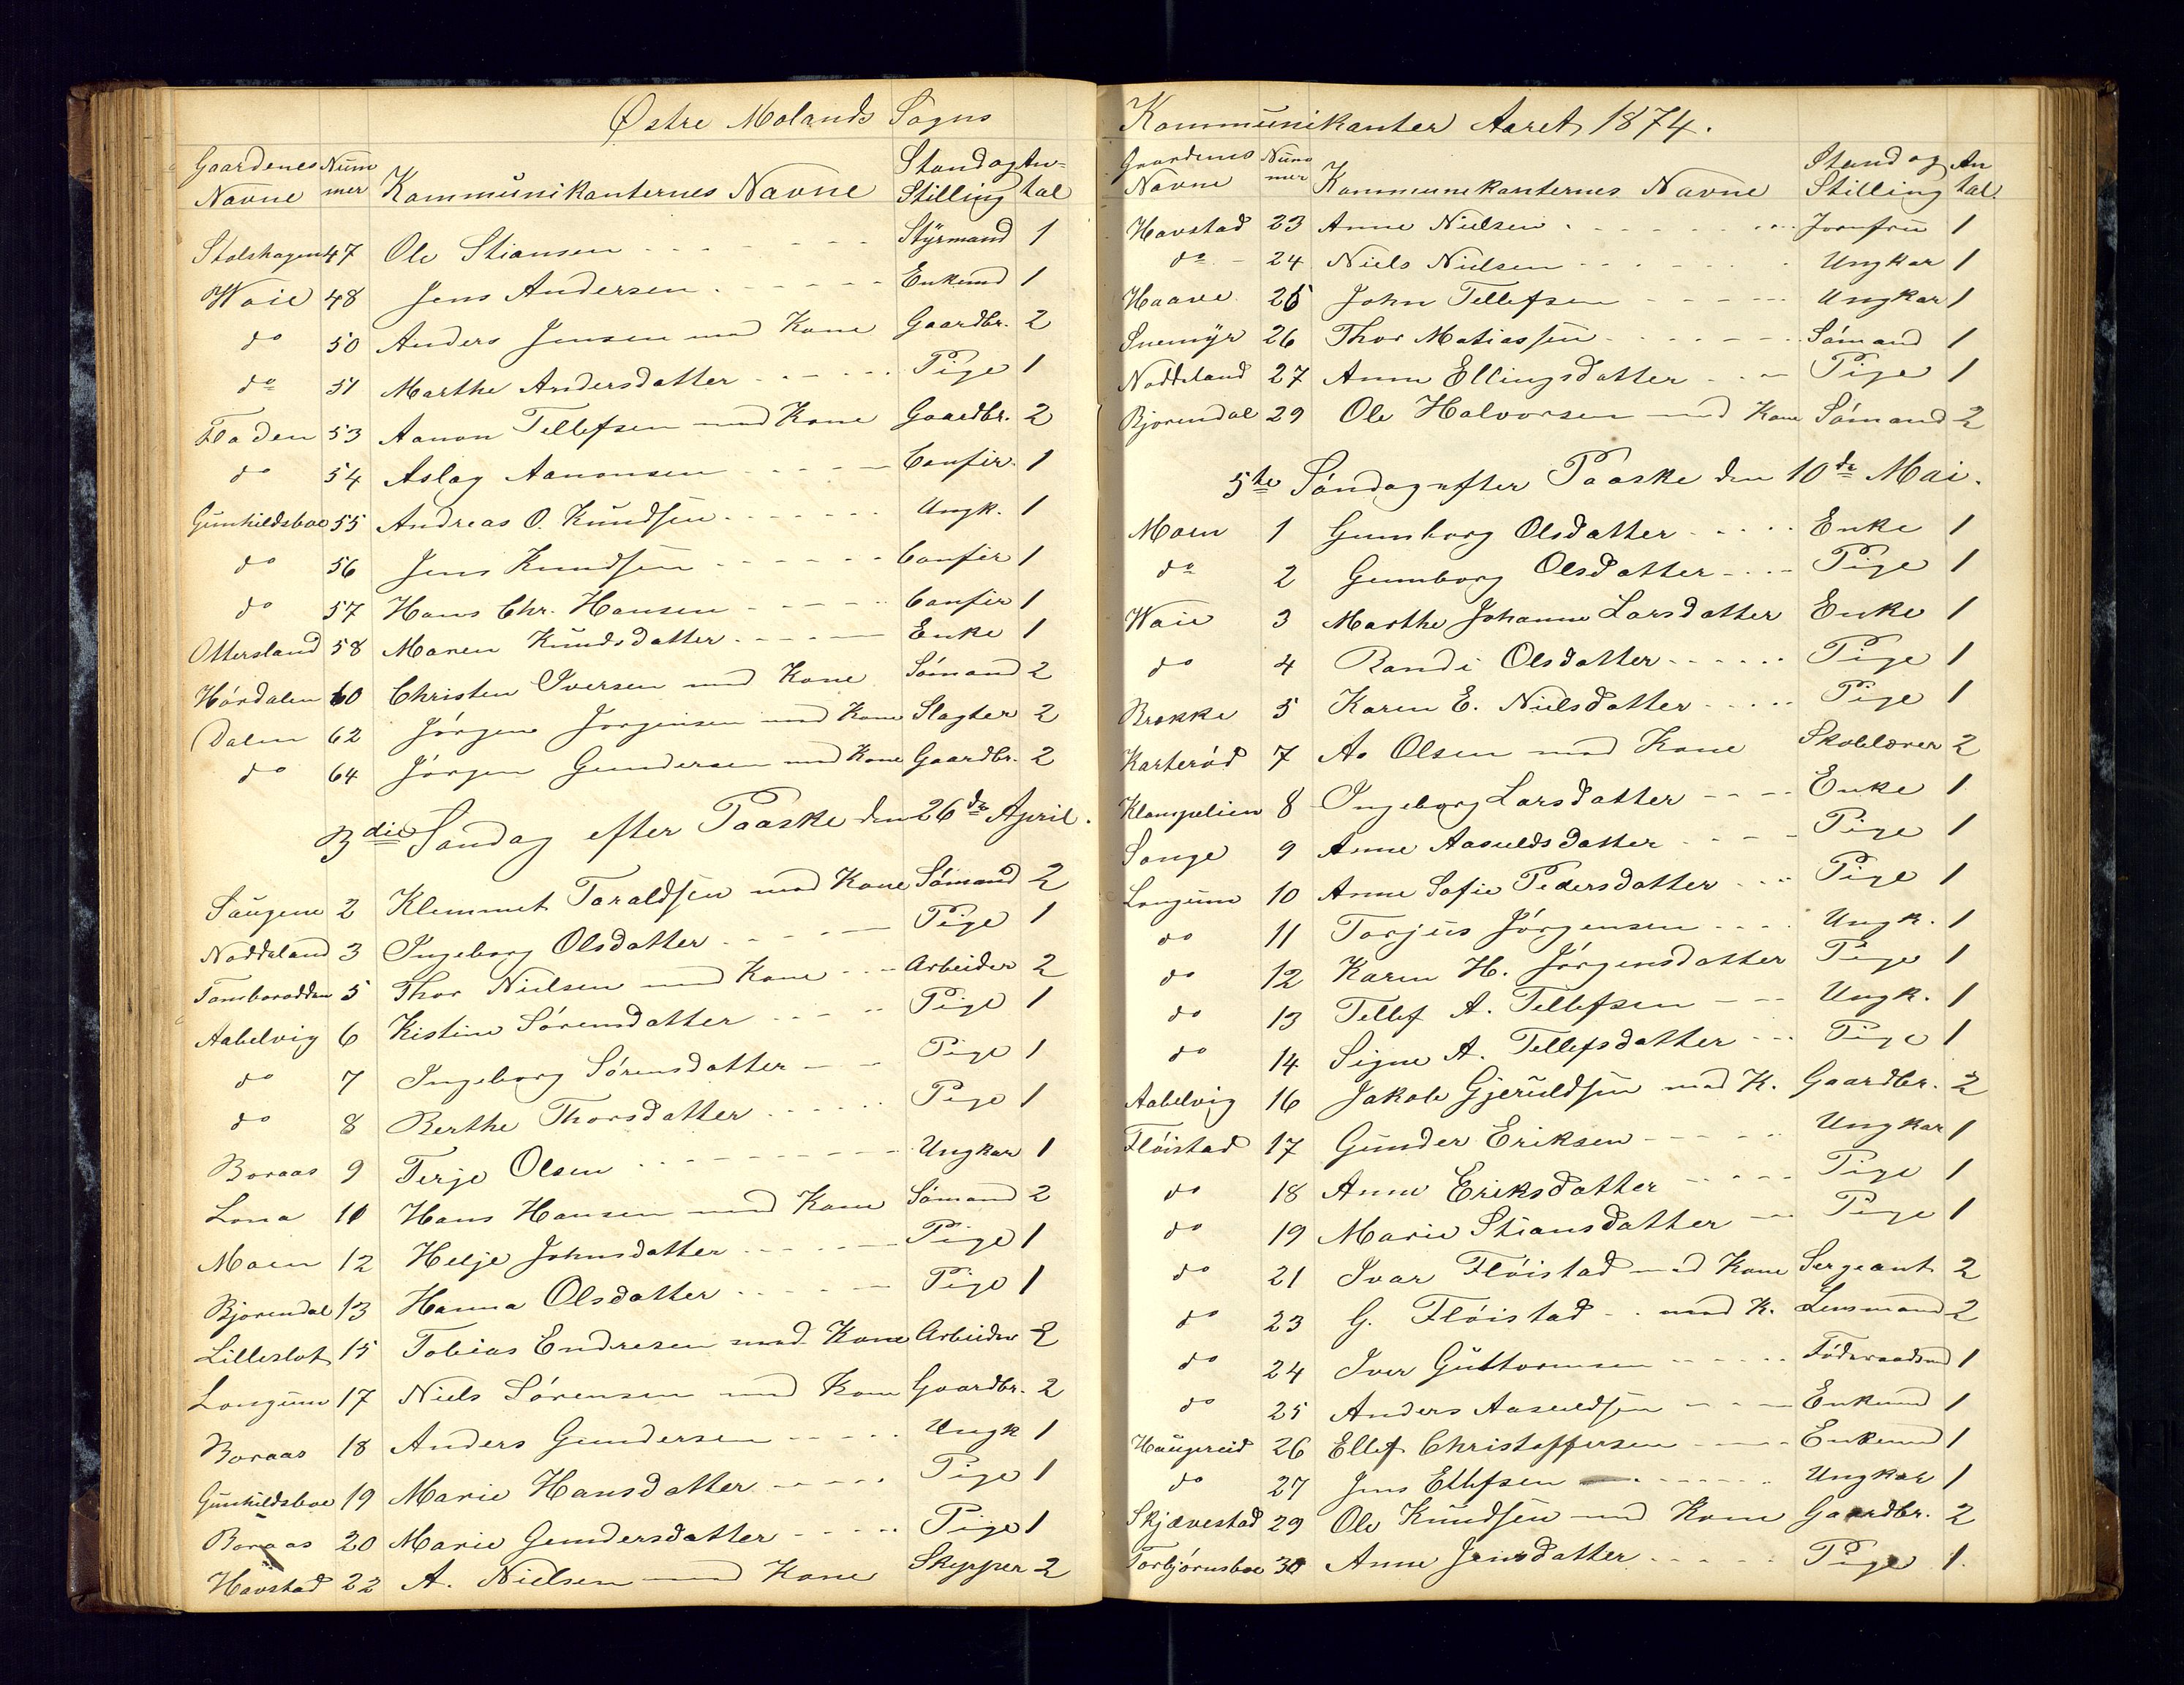 Østre Molands Sogns
Gaardenes Navne Nummer Kommunikanternes Navne Stand og Stilling Antal
Stolshagen 47 Ole Stiansen Styrmand 1
Waie 48 Jens Andersen Enkemd 1
do 50 Anders Jensen med Kone Gaardbr. 2
do 51 Marthe Andersdatter Pige 1
Fladen 53 Aanon Tellefsen med Kone Gaardbr. 2
do 54 Aslag Aanonsen Confir. 1
Gunhildsboe 55 Andreas O. Knudsen Ungk. 1
do 56 Jens Knudsen Confir 1
do 57 Hans Chr. Hansen Confir 1
Ottersland 58 Maren Knudsdatter Enke 1
Hørdalen 60 Christen Iversen med Kone Sømand 2
Dalen 62 Jørgen Jørgensen med Kone Slagter 2
do 64 Jørgen Gundersen med Kone Gaardbr. 2
3die Søndag efter Paaske den 26de April.
Saugene 2 Klemmet Taraldsen med Kone Sømand 2
Noddeland 3 Ingeborg Olsdatter Pige 1
Tomborodden 5 Thor Nielsen med Kone Arbeider 2
Aabelvig 6 Kistine Sørensdatter Pige 1
do 7 Ingeborg Sørensdatter Pige 1
do 8 Berthe Thorsdatter Pige 1
Boraas 9 Terje Olsen Ungkar 1
Lona 11 Hans Hansen med Kone Sømand 2
Moen 12 Helje Johnsdatter Pige 1
Bjorendal 13 Hanna Olsdatter Pige 1
Lilleslot 15 Tobias Endresen med Kone Arbeider 2
Longum 17 Niels Sørensen med Kone Gaardbr. 2
Boraas 18 Anders Gundersen Ungk 1
Gunhildsboe 19 Marie Hansdatter Pige 1
Boraas 20 Marie Gundersdatter Pige 1
Havstad 22 A. Nielsen med Kone Skypper 2
Kommunikanter Aaret 1874.
Gaardenes Navne Nummer Kommunikanternes Navne Stand og Stilling Antal.
Havstad 23 Anne Nielsen Jomfru 1
do 24 Niels Nielsen Ungkar 1
Haave 25 John Tellefsen Ungkar 1
Snemyr 26 Thor Matiassen Sømand 1
Noddeland 27 Anne Ellingsdatter Pige 1
Bjorendal 29 Ole Halvorsen med Kone Sømand 2
5te Søndag efter Paaske den 10de Mai.
Moen 1 Gunborg Olsdatter Enke 1
do 2 Gunborg Olsdatter Pige 1
Waie 3 Marthe Johanne Larsdatter Enke 1
do 4 Randi Olsdatter Pige 1
Brække 5 Karen E. Nielsdatter Pige 1
Karterød 7 As Olsen med Kone Skolelærer 2
Klampelien 8 Ingeborg Larsdatter Enke 1
Songe 9 Anne Aasuldsdatter Pige 1
Longum 10 Anne Sofie Pedersdatter Pige 1
do 11 Torjus Jørgensen Ungk. 1
do 12 Karen H. Jørgensdatter Pige 1
do 13 Tellef A. Tellefsen Ungk. 1
do 14 Signe A. Tellefsdatter Pige 1
Aabelvig 16 Jakob Gjeruldsen med K. Gaardbr. 2
Fløistad 17 Gunder Eriksen Ungkar 1
do 18 Anne Eriksdatter Pige 1
do 19 Marie Stiansdatter Pige 1
do 21 Ivar Fløistad med Kone Sergeant 2
do 23 G. Fløistad med K. Lensmand 2
do 24 Iver Guttormsen Føderaadsmd 1
do 25 Anders Aasuldsen Enkemd 1
Haugereid 26 Ellef Christoffersen Enkemd 1
do 27 Jens Ellefsen Ungkar 1
Skjævestad 29 Ole Knudsen med Kone Gaardbr. 2
Torbjørnsboe 30 Anne Jensdatter Pige 1.